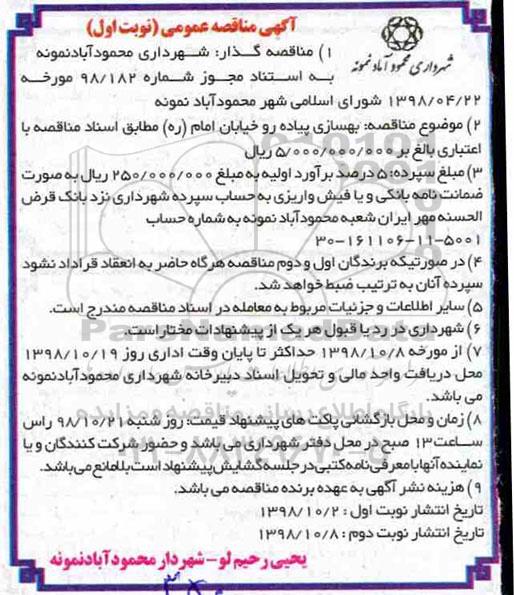 آگهی مناقصه عمومی (نوبت اول)
شهرداری محمودآباد نمونه
۱) مناقصه گذار: شهرداری محمودآبادنمونه
به استناد مجوز شماره ۹۸/۱۸۲ مورخه
۱۳۹۸/۰۴/۲۲ شورای اسلامی شهر محمودآباد نمونه
۲) موضوع مناقصه: بهسازی پیاده رو خیابان امام (ره) مطابق اسناد مناقصه با
اعتباری بالغ بر ۵/۰۰۰/۰۰۰/۰۰۰ ریال
۳) مبلغ سپرده: ۵ درصد برآورد اولیه به مبلغ ۲۵۰/۰۰۰/۰۰۰ ریال به صورت
ضمانت نامه بانکی و یا فیش واریزی به حساب سپرده شهرداری نزد بانک قرض
الحسنه مهر ایران شعبه محمودآباد نمونه به شماره حساب
۳۰-۱۶۱۱۰۶-۱۱-۵۰۰۱
۴) در صورتیکه برندگان اول و دوم مناقصه هرگاه حاضر به انعقاد قراداد نشود
سپرده آنان به ترتیب ضبط خواهد شد.
۵) سایر اطلاعات و جزئیات مربوط به معامله در اسناد مناقصه مندرج است.
۶) شهرداری در رد یا قبول هر یک از پیشنهادات مختار است.
۷) از مورخه ۱۳۹۸/۱۰/۸ حداکثر تا پایان وقت اداری روز ۱۳۹۸/۱۰/۱۹
محل دریافت واحد مالی و تحویل اسناد دبیرخانه شهرداری محمودآبادنمونه
می باشد.
۸) زمان و محل بازگشائی پاکت های پیشنهاد قیمت: روز شنبه ۹۸/۱۰/۲۱ راس
ساعت ۱۳ صبح در محل دفتر شهرداری می باشد و حضور شرکت کنندگان و یا
نماینده آنها با معرفی نامه کتبی در جلسه گشایش پیشنهاد است بلامانع می باشد.
۹) هزینه نشر آگهی به عهده برنده مناقصه می باشد.
تاریخ انتشار نوبت اول : ۱۳۹۸/۱۰/۲
تاریخ انتشار نوبت دوم : ۱۳۹۸/۱۰/۸
یحیی رحیم لو - شهردار محمودآبادنمونه
ParsNamadData
پایگاه اطلاع رسانی مناقصه و مزایده
۰۲۱-۸۸۳۴۹۶۷۰-۵